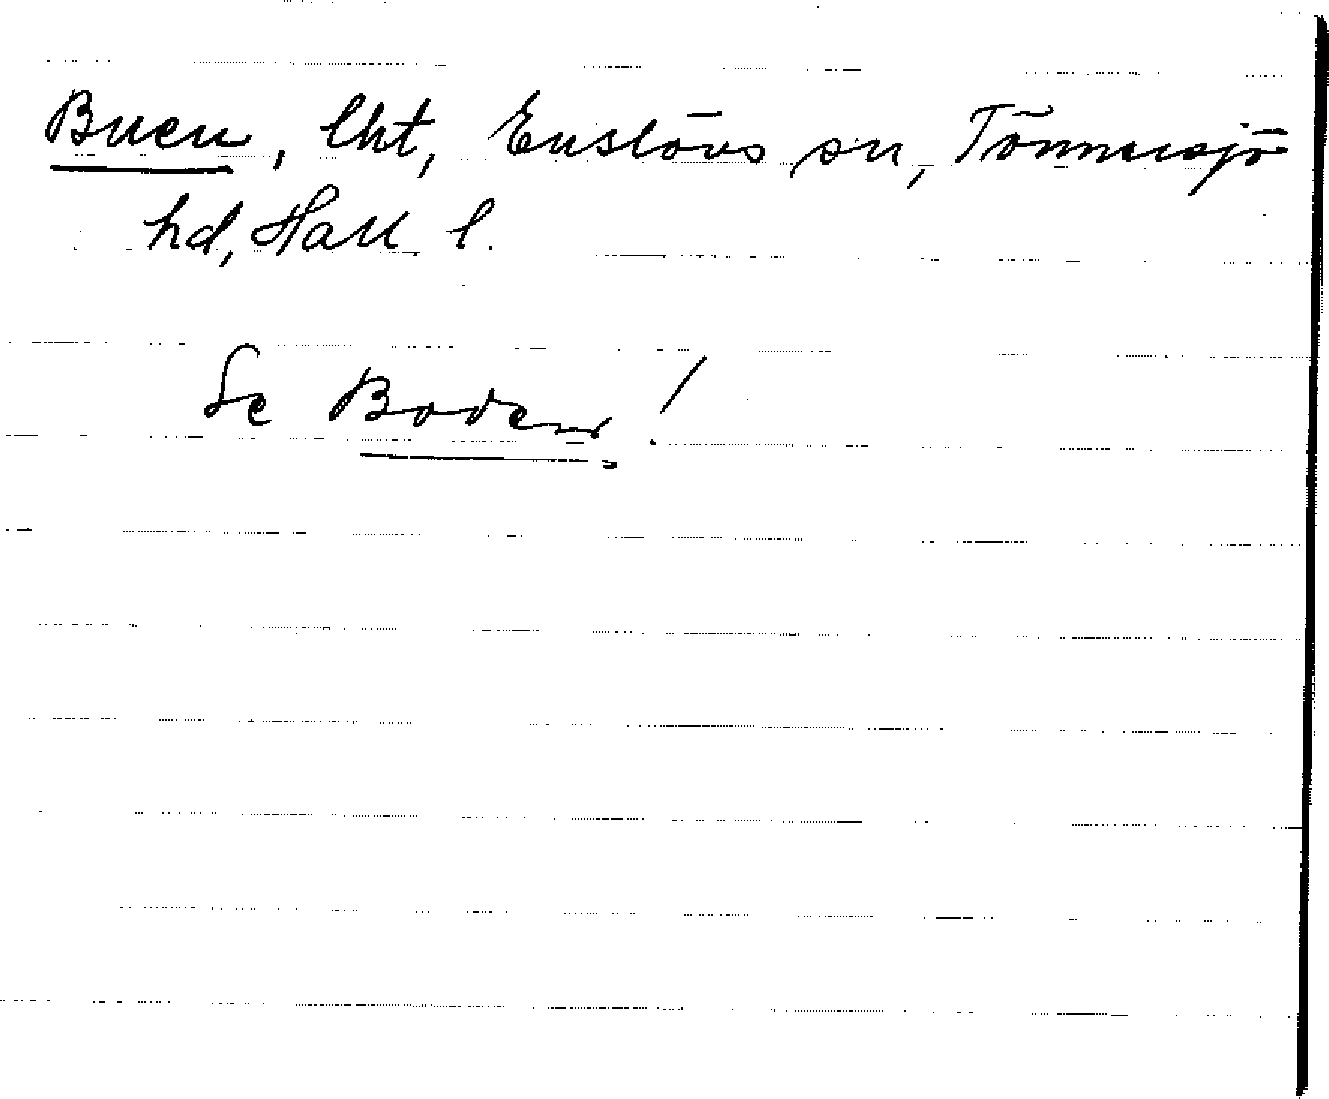 Buen, lht, Enslövs sn, Tönnersjö
hd, Hall l.
Se Boden!